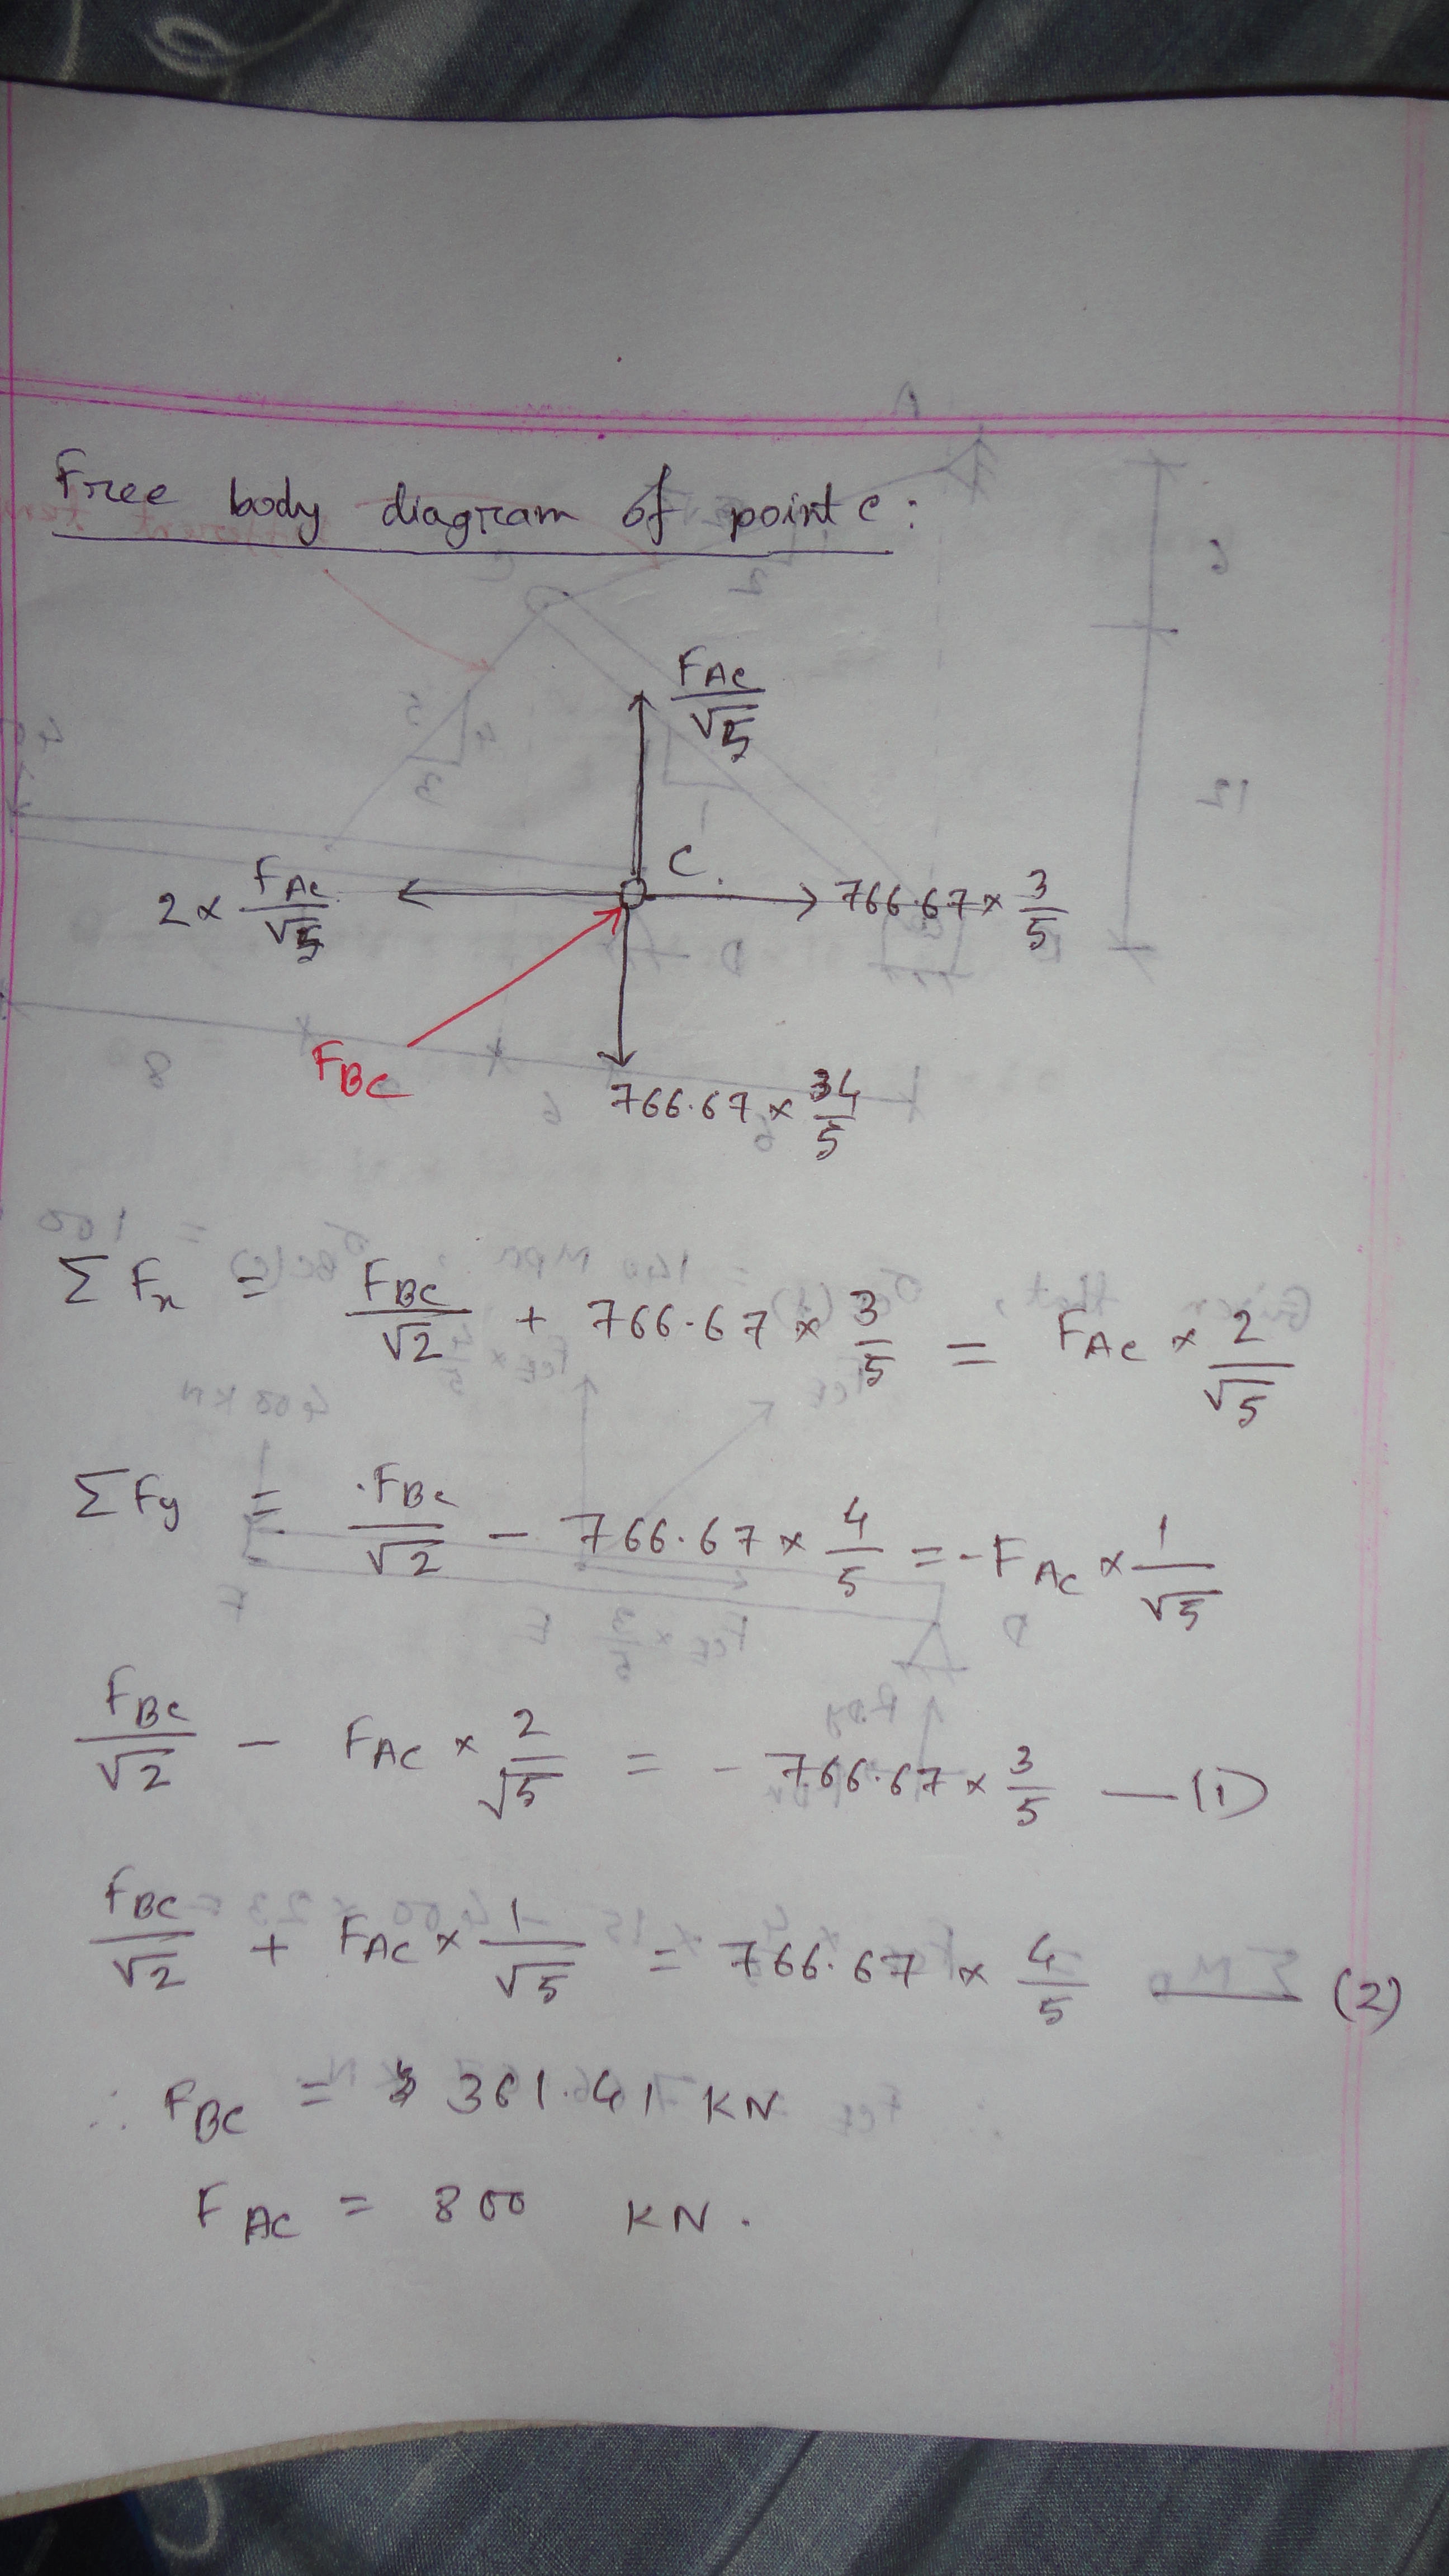 Free body diagram of point C:
F_AC / √5
C.
2 × F_AC / √5
766.67 × 3/5
F_BC
766.67 × 4/5
ΣFx = F_BC/√2 + 766.67 × 3/5 = F_AC × 2/√5
ΣFy = F_BC/√2 - 766.67 × 4/5 = - F_AC × 1/√5
F_BC/√2 - F_AC × 2/√5 = - 766.67 × 3/5 — (1)
F_BC/√2 + F_AC × 1/√5 = 766.67 × 4/5 — (2)
∴ F_BC = 361.41 KN
F_AC = 800 KN.